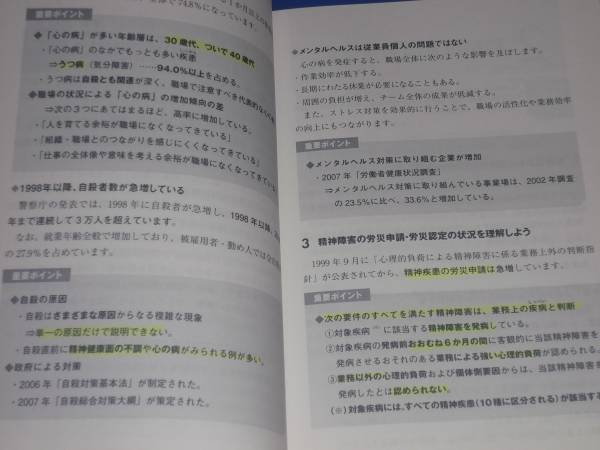 体で74.8%になっています。
重要ポイント
◆「心の病」が多い年齢層は、30歳代、ついで40歳代
・「心の病」のなかでもっとも多い疾患
⇒うつ病（気分障害）……94.0%以上を占める。
・うつ病は自殺とも関連が深く、職場で注意すべき代表的な
◆職場の状況による「心の病」の増加傾向の差
⇒次の3つにあてはまるほど、高率に増加している。
・「人を育てる余裕が職場になくなってきている」
・「組織・職場とのつながりを感じにくくなってきている」
・「仕事の全体像や意味を考える余裕が職場になくなってきている」
◆1998年以降、自殺者数が急増している
警察庁の発表では、1998年に自殺者が急増し、1998年以降、
年まで連続して3万人を超えています。
なお、就業年齢全般で増加しており、被雇用者・勤め人では
の27.9%を占めています。
重要ポイント
◆自殺の原因
・自殺はさまざまな原因からなる複雑な現象
⇒単一の原因だけで説明できない。
・自殺直前に精神健康面の不調や心の病がみられる例が多い。
◆政府による対策
・2006年「自殺対策基本法」が制定された。
・2007年「自殺総合対策大綱」が策定された。
◆メンタルヘルスは従業員個人の問題ではない
心の病を発症すると、職場全体に次のような影響を及ぼします。
・作業効率が低下する。
・長期にわたる休業が必要になることもある。
・周囲の負担が増え、チーム全体の成果が低減する。
また、ストレス対策を効果的に行うことで、職場の活性化や業務効率
の向上にもつながります。
重要ポイント
◆メンタルヘルス対策に取り組む企業が増加
・2007年「労働者健康状況調査」
⇒メンタルヘルス対策に取り組んでいる事業場は、2002年調査
の23.5%に比べ、33.6%と増加している。
3 精神障害の労災申請・労災認定の状況を理解しよう
1999年9月に「心理的負荷による精神障害に係る業務上外の判断指
針」が公表されてから、精神疾患の労災申請は急増しています。
重要ポイント
◆次の要件のすべてを満たす精神障害は、業務上の疾病と判断
①対象疾病(※)に該当する精神障害を発病している。
②対象疾病の発病前おおむね6か月の間に客観的に当該精神障害を
発病させるおそれのある業務による強い心理的負荷が認められる。
③業務以外の心理的負荷および個体側要因からは、当該精神障害を
発病したとは認められない。
(※)対象疾病には、すべての精神疾患（10種に区分される）が該当する